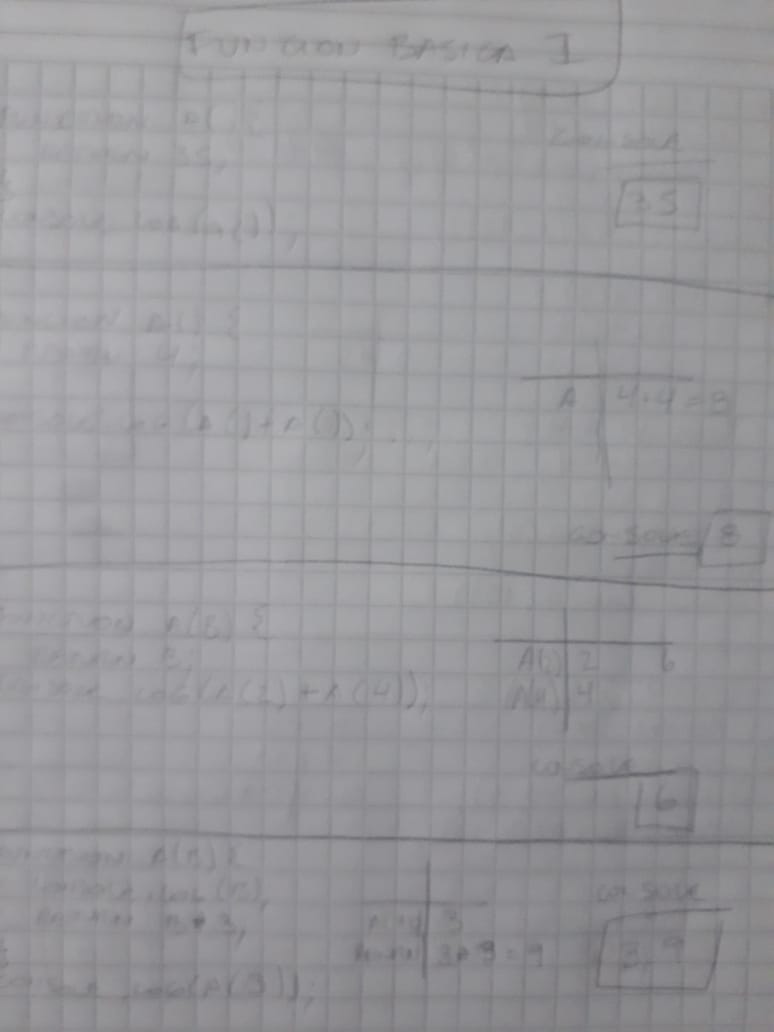 FUNCTION BASICA I
FUNCTION A( ) {
RETURN 35;
}
CONSOLE LOG(A());
CONSOLE
35
FUNCTION A( ) {
RETURN 4;
LOG(A()+A());
A 4+4=8
CONSOLE 8
FUNCTION A(B) {
RETURN B;
CONSOLE LOG(A(2)+A(4));
A(2) 2 6
A(4) 4
CONSOLE
6
FUNCTION A(B) {
CONSOLE LOG(B);
RETURN B*3;
}
CONSOLE LOG(A(3));
3
3*3=9
CONSOLE
3, 9